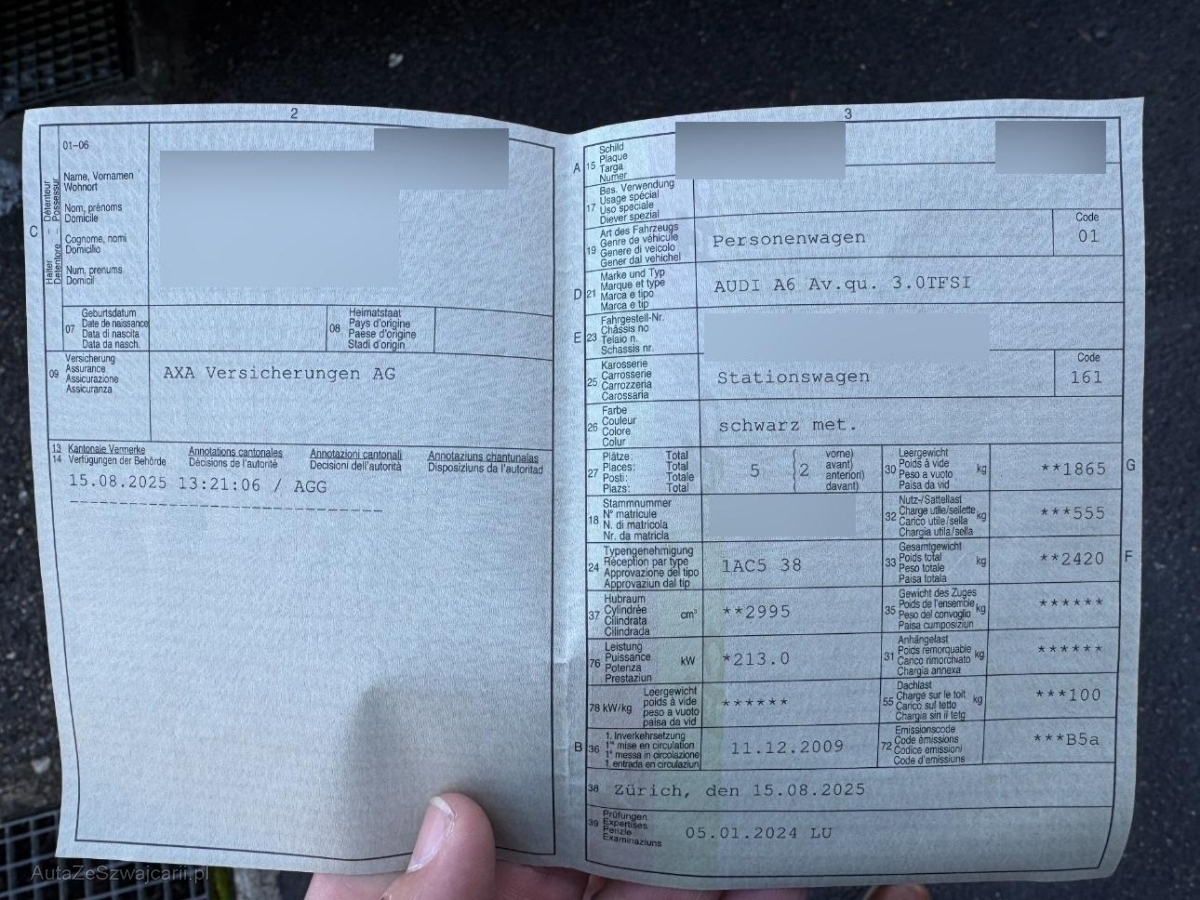 2
01-06
Name, Vornamen
Wohnort
Nom, prénoms
Domicile
Cognome, nomi
Domicilio
Num, prenums
Domicil
C
Halter – Détenteur
Detentore – Possessur
07
Geburtsdatum
Date de naissance
Data di nascita
Data da nasch.
08
Heimatstaat
Pays d'origine
Paese d'origine
Stadi d'origin
09
Versicherung
Assurance
Assicurazione
Assicuranza
AXA Versicherungen AG
13
14
Kantonale Vermerke
Verfügungen der Behörde
Annotations cantonales
Décisions de l'autorité
Annotazioni cantonali
Decisioni dell'autorità
Annotaziuns chantunalas
Disposiziuns da l'autoritad
15.08.2025 13:21:06 / AGG
3
A 15
Schild
Plaque
Targa
Numer
17
Bes. Verwendung
Usage spécial
Uso speciale
Diever spezial
19
Art des Fahrzeugs
Genre de véhicule
Genere di veicolo
Gener dal vehichel
Personenwagen
Code
01
D 21
Marke und Typ
Marque et type
Marca e tipo
Marca e tip
AUDI A6 Av.qu. 3.0TFSI
E 23
Fahrgestell-Nr.
Châssis no
Telaio n.
Schassis nr.
25
Karosserie
Carrosserie
Carrozzeria
Carossaria
Stationswagen
Code
161
26
Farbe
Couleur
Colore
Colur
schwarz met.
27
Plätze: Total
Places: Total
Posti: Totale
Plazs: Total
5 (2 vorne)
avant)
anteriori)
davant)
30
Leergewicht
Poids à vide
Peso a vuoto
Paisa da vid
kg
**1865
G
18
Stammnummer
N° matricule
N. di matricola
Nr. da matricla
32
Nutz-/Sattellast
Charge utile/sellette
Carico utile/sella
Chargia utila/sella
kg
***555
24
Typengenehmigung
Réception par type
Approvazione del tipo
Approvaziun dal tip
1AC5 38
33
Gesamtgewicht
Poids total
Peso totale
Paisa totala
kg
**2420
F
37
Hubraum
Cylindrée
Cilindrata
Cilindrada
cm³
**2995
35
Gewicht des Zuges
Poids de l'ensemble
Peso del convoglio
Paisa cumposiziun
kg
******
76
Leistung
Puissance
Potenza
Prestaziun
kW
*213.0
31
Anhängelast
Poids remorquable
Carico rimorchiato
Chargia annexa
kg
******
78 kW/kg
Leergewicht
poids à vide
peso a vuoto
paisa da vid
******
55
Dachlast
Charge sur le toit
Carico sul tetto
Chargia sin il tetg
kg
***100
B 36
1. Inverkehrsetzung
1re mise en circulation
1a messa in circolazione
1. entrada en circulaziun
11.12.2009
72
Emissionscode
Code émissions
Codice emissioni
Code d'emissiuns
***B5a
38
Zürich, den 15.08.2025
39
Prüfungen
Expertises
Perizie
Examinaziuns
05.01.2024 LU
AutaZeSzwajcarii.pl